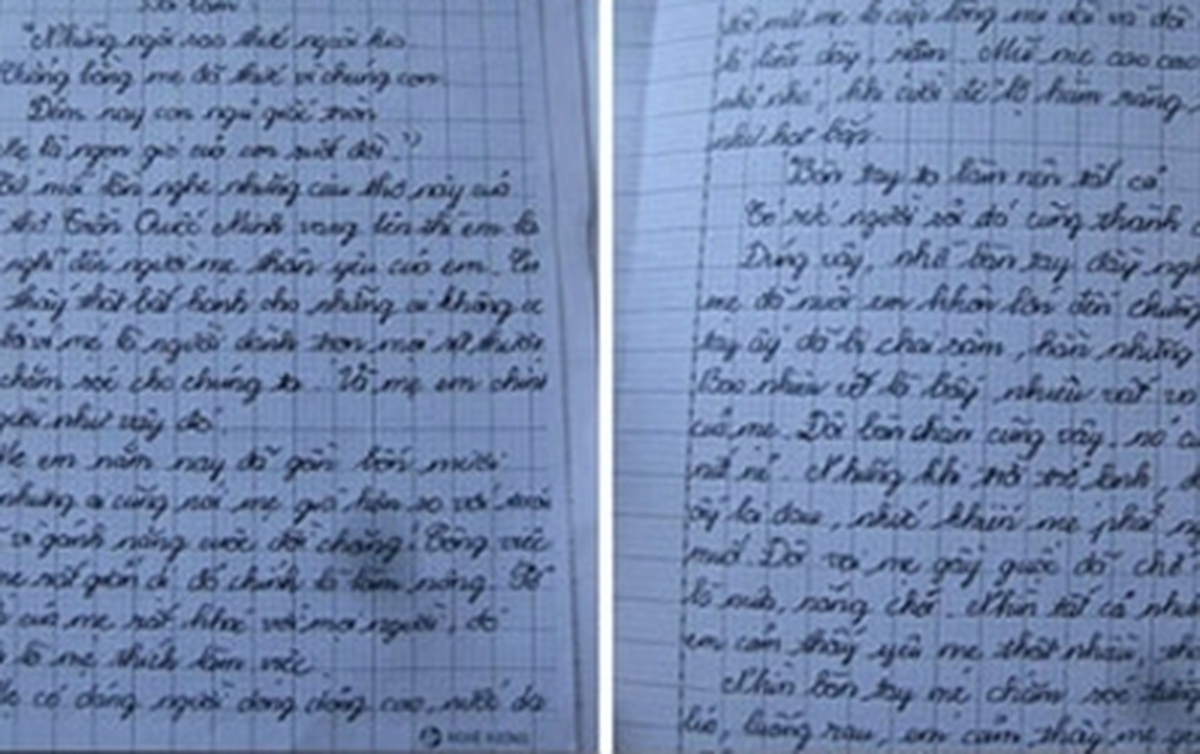 Bài làm
"Những ngôi sao thức ngoài kia
Chẳng bằng mẹ đã thức vì chúng con
Đêm nay con ngủ giấc tròn
Mẹ là ngọn gió của con suốt đời."
mỗi lần nghe những câu thơ này của
thơ Trần Quốc Minh vang lên thì em lại
nghĩ đến người mẹ thân yêu của em. Em
thấy thật bất hạnh cho những ai không
bởi vì mẹ là người dành trọn mọi
chăm sóc cho chúng ta. Và mẹ em chính
người như vậy đó.
Mẹ em năm nay đã gần bốn mươi
nhưng ai cũng nói mẹ già hơn so với tuổi
vì gánh nặng cuộc đời chăng! Công việc
mẹ rất giản dị đó chính là làm nông. Sở
của mẹ rất khác với mọi người, đó
là mẹ thích làm việc
Mẹ có dáng người dong dỏng cao, nước da
NGHE HUONG
đôi mắt mẹ là cặp lông mi dài và đôi
lá liễu dày, rậm. Mũi mẹ cao cao
nhỏ nhỏ, khi cười để lộ hàm răng
như hạt bắp.
"Bàn tay ta làm nên tất cả
Có sức người sỏi đá cũng thành
Đúng vậy, nhờ bàn tay đầy
mẹ đã nuôi em khôn lớn đến chừng
tay ấy đã bị chai sạm, hằn những
Bao nhiêu cái là bấy nhiêu vất vả
của mẹ. Đôi bàn chân cũng vậy, nó
nứt nẻ. Những khi trời trở lạnh,
ấy lại đau, nhức khiến mẹ phải
mới. Đôi vai mẹ gầy guộc đã
là mưa, nắng cháy. Nhìn tất cả
em cảm thấy yêu mẹ thật nhiều,
Nhìn bàn tay mẹ chăm sóc từng
lúa, luống rau, em cảm thấy mẹ